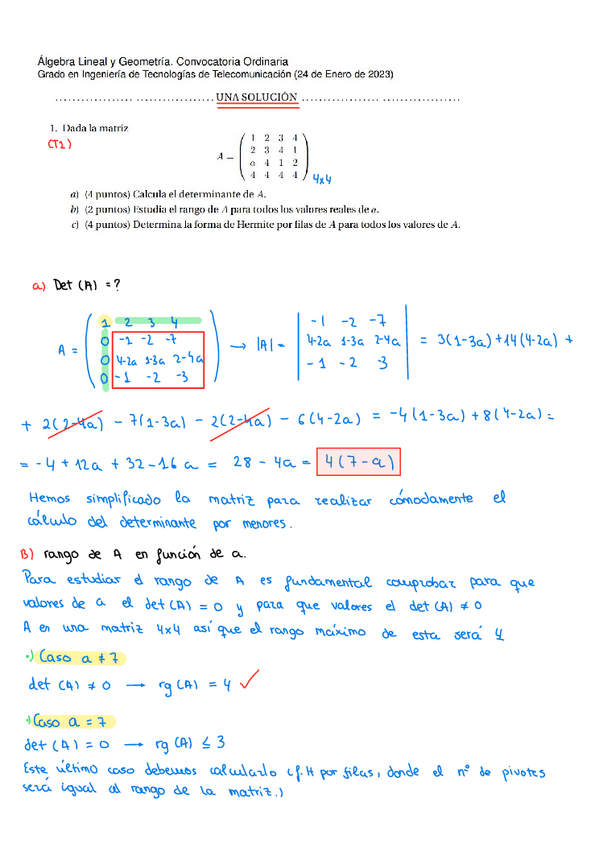 Álgebra Lineal y Geometría. Convocatoria Ordinaria
Grado en Ingeniería de Tecnologías de Telecomunicación (24 de Enero de 2023)
.................. .................. UNA SOLUCIÓN .................. ..................
1. Dada la matriz
(T1)
1 2 3 4
2 3 4 1
A = a 4 1 2
4 4 4 4 4x4
a) (4 puntos) Calcula el determinante de A.
b) (2 puntos) Estudia el rango de A para todos los valores reales de a.
c) (4 puntos) Determina la forma de Hermite por filas de A para todos los valores de A.
a) Det (A) = ?
1 2 3 4
0 -1 -2 -7
A = 0 4-2a 1-3a 2-4a → |A| = -1 -2 -7
0 -1 -2 -3
4-2a 1-3a 2-4a = 3(1-3a)+14(4-2a) +
-1 -2 -3
+ 2(2-4a) - 7(1-3a) - 2(2-4a) - 6(4-2a) = -4(1-3a) + 8(4-2a) =
= -4 + 12a + 32 - 16a = 28 - 4a = 4(7-a)
Hemos simplificado la matriz para realizar cómodamente el
cálculo del determinante por menores.
B) rango de A en función de a.
Para estudiar el rango de A es fundamental comprobar para que
valores de a el det(A) = 0 y para que valores el det(A) ≠ 0
A en una matriz 4x4 así que el rango máximo de esta será 4
·) Caso a ≠ 7
det (A) ≠ 0 → rg (A) = 4 ✓
·) Caso a = 7
det (A) = 0 → rg (A) ≤ 3
Este último caso debemos calcularlo (f.H por filas, donde el nº de pivotes
será igual al rango de la matriz.)